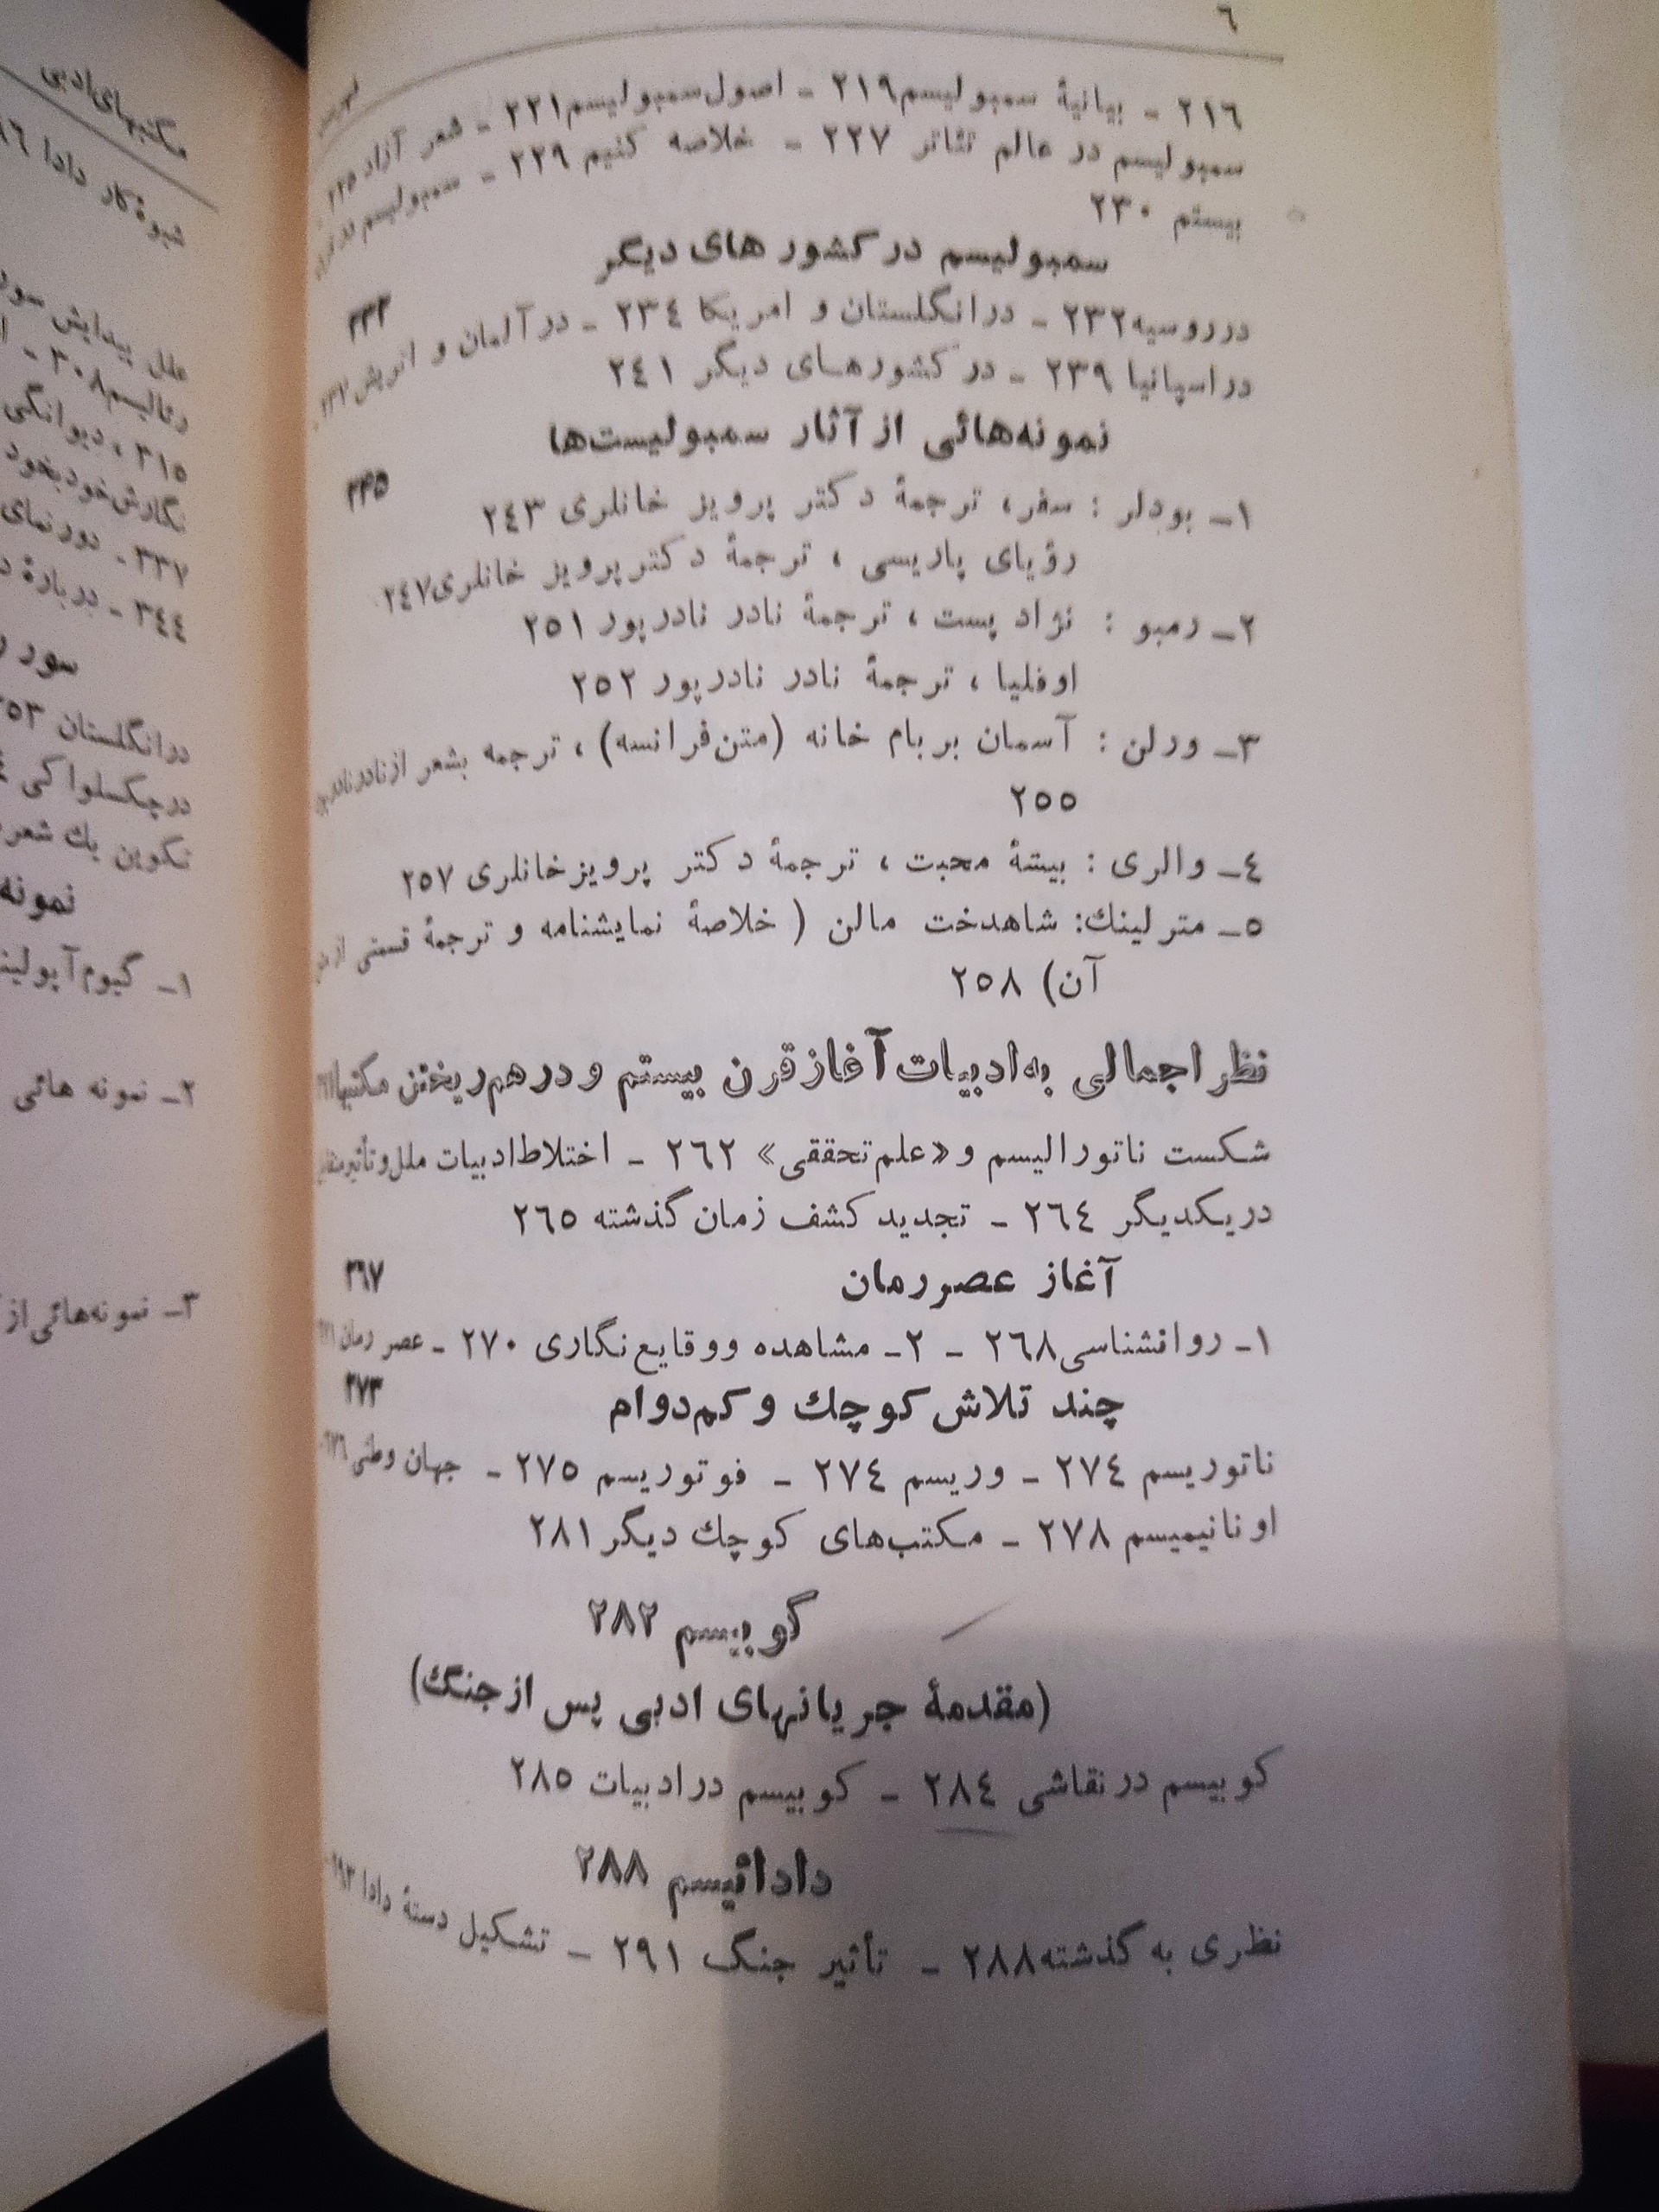 ٦
فهرست
٢١٦ - بیانیهٔ سمبولیسم٢١٩ - اصول‌سمبولیسم٢٢١ - شعر آزاد ٢٢٥
سمبولیسم در عالم تئاتر ٢٢٧ - خلاصه کنیم ٢٢٩ - سمبولیسم در قرن
بیستم ٢٣٠
سمبولیسم در کشور های دیگر ٢٣٢
در روسیه٢٣٢ - در انگلستان و امریکا ٢٣٤ - در آلمان و اتریش ٢٣٧
در اسپانیا ٢٣٩ - در کشورهـای دیگر ٢٤١
نمونه‌هائی از آثار سمبولیست‌ها
١- بودلر : سفر، ترجمهٔ دکتر پرویز خانلری ٢٤٣
رؤیای پاریسی ، ترجمهٔ دکتر پرویز خانلری٢٤٧
٢- رمبو : نژاد پست ، ترجمهٔ نادر نادرپور ٢٥١
اوفلیا ، ترجمهٔ نادر نادرپور ٢٥٢
٣- ورلن : آسمان بر بام خانه (متن‌فرانسه) ، ترجمه بشعر از نادر نادرپور
٢٥٥
٤- والری : بیشهٔ محبت ، ترجمهٔ دکتر پرویز خانلری ٢٥٧
٥- مترلینك: شاهدخت مالن ( خلاصهٔ نمایشنامه و ترجمهٔ قسمتی از
آن) ٢٥٨
نظر اجمالی به ادبیات آغاز قرن بیستم و درهم ریختن مکتبها
شکست ناتورالیسم و «علم‌تحققی» ٢٦٢ - اختلاط ادبیات ملل و تأثیر
در یکدیگر ٢٦٤ - تجدید کشف زمان گذشته ٢٦٥
آغاز عصر رمان ٢٦٧
١- روانشناسی٢٦٨ - ٢- مشاهده و وقایع نگاری ٢٧٠ - عصر رمان
چند تلاش کوچك و کم‌دوام ٢٧٣
ناتوریسم ٢٧٤ - وریسم ٢٧٤ - فوتوریسم ٢٧٥ - جهان وطنی ٢٧٦
اونانیمیسم ٢٧٨ - مکتب‌های کوچك دیگر ٢٨١
کوبیسم ٢٨٢
(مقدمهٔ جریانهای ادبی پس از جنگ)
کوبیسم در نقاشی ٢٨٤ - کوبیسم در ادبیات ٢٨٥
دادائیسم ٢٨٨
نظری به گذشته٢٨٨ - تأثیر جنگ ٢٩١ - تشکیل دستهٔ دادا ٢٩٣
مکتبهای ادبی
شیوهٔ کار دادا
علل پیدایش
رئالیسم٣٠٨ -
٣١٥ ، دیوانگی
نگارش خودبخود
٣٣٧ - دورنمای
٣٤٤ - دربارهٔ
سور
در انگلستان ٣٥٣
در چکسلواکی
تکوین یك شعر
نمونه
١- گیوم آپولینر
٢- نمونه هائی
٣- نمونه‌هائی از